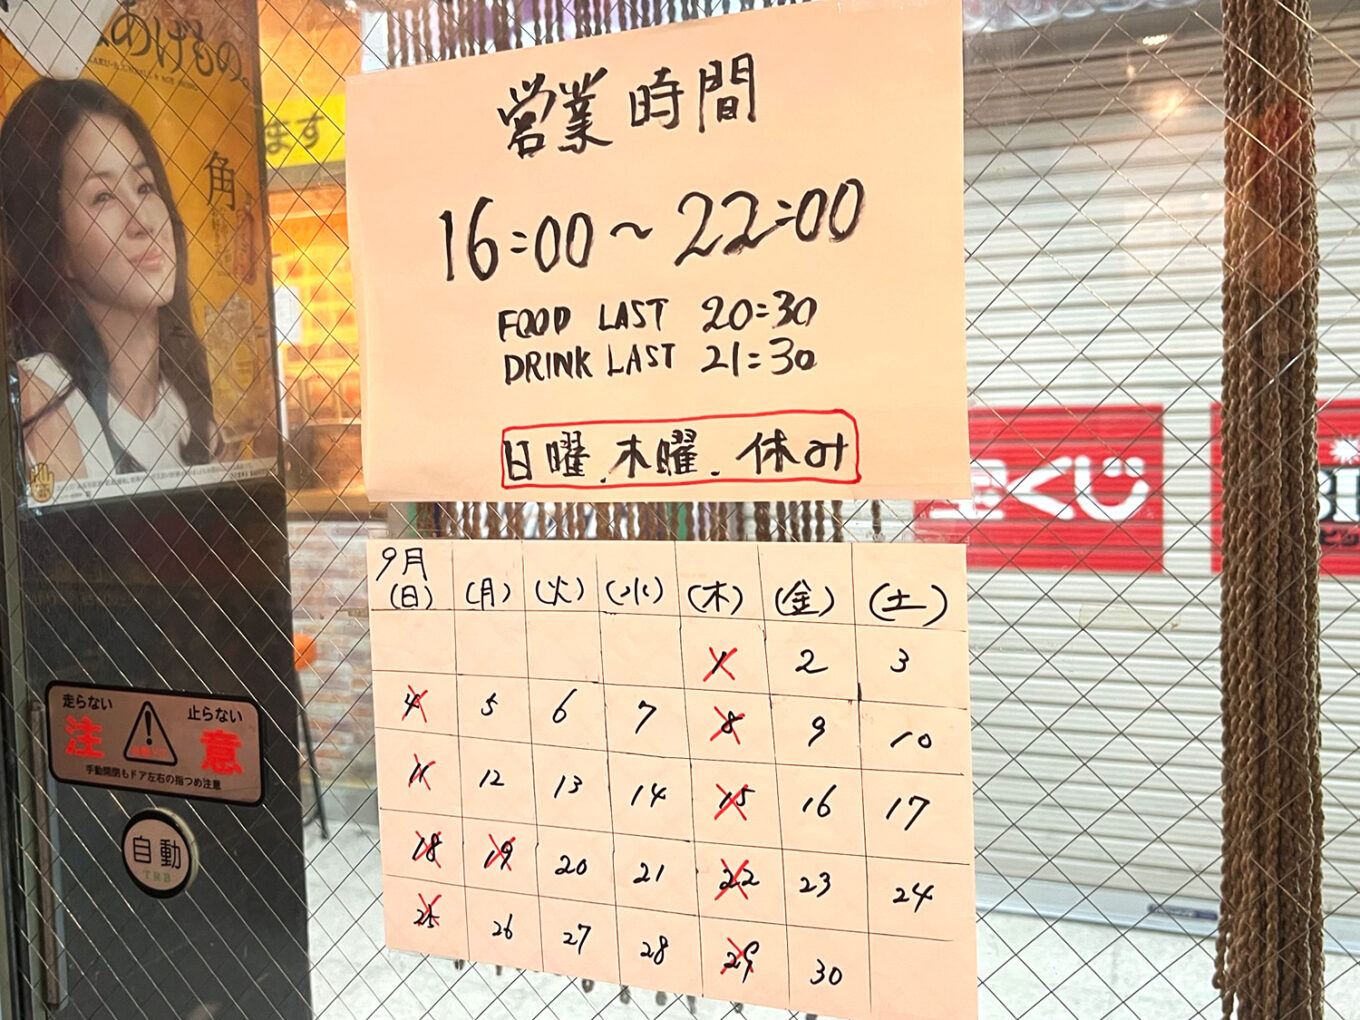 あげもの。
角
ます
営業時間
16:00～22:00
FOOD LAST 20:30
DRINK LAST 21:30
日曜.木曜.休み
宝くじ
9月
(日) (月) (火) (水) (木) (金) (土)
1 2 3
4 5 6 7 8 9 10
11 12 13 14 15 16 17
18 19 20 21 22 23 24
25 26 27 28 29 30
走らない 止らない
注 意
手動開閉もドア左右の指つめ注意
自動